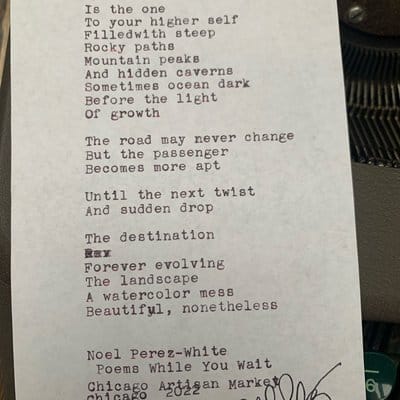 Is the one
To your higher self
Filledwith steep
Rocky paths
Mountain peaks
And hidden caverns
Sometimes ocean dark
Before the light
Of growth
The road may never change
But the passenger
Becomes more apt
Until the next twist
And sudden drop
The destination
Forever evolving
The landscape
A watercolor mess
Beautiful, nonetheless
Noel Perez-White
Poems While You Wait
Chicago Artisan Market
Chicago 2022